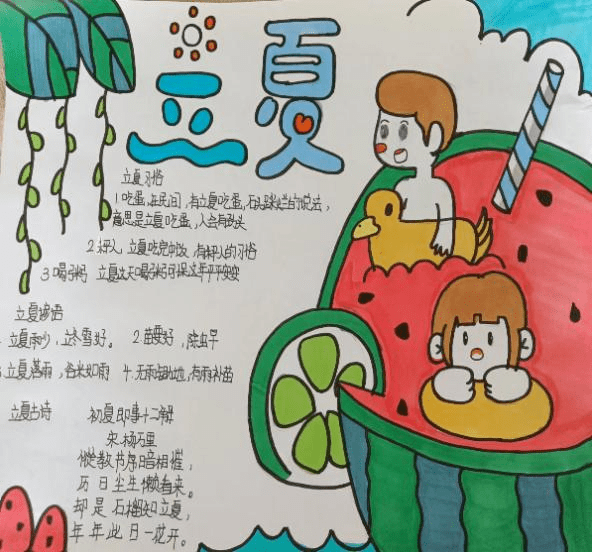 立夏
立夏习俗
1.吃蛋,在民间,有立夏吃蛋,石头踩烂的说法,
意思是立夏吃蛋,人会有劲头
2.秤人 立夏吃完中饭,有秤人的习俗
3.喝粥 立夏这天喝粥可保这年平平安安
立夏谚语
立夏雨少,立冬雪好。 2.苗要好,除虫早
立夏落雨,谷米如雨 4.无雨,有雨补苗
立夏古诗 初夏即事十二解
宋.杨万里
从教节序暗相催,
历日尘生懒看来。
却是石榴知立夏,
年年此日一花开。